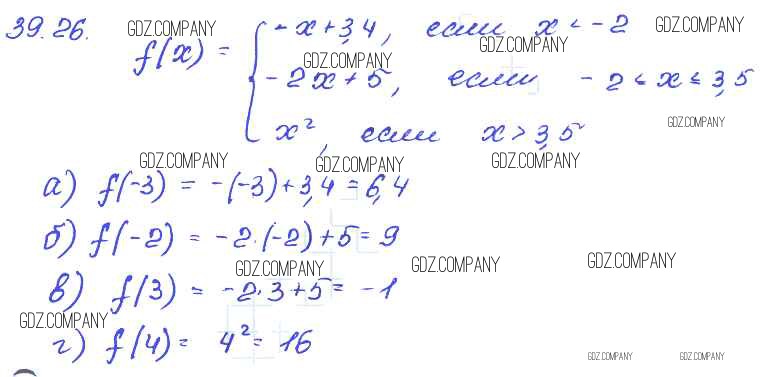 39.26.
GDZ.COMPANY GDZ.COMPANY
f(x) = { -x+3,4, если x < -2
GDZ.COMPANY GDZ.COMPANY
-2x+5, если -2 ≤ x ≤ 3,5
GDZ.COMPANY
x², если x > 3,5
GDZ.COMPANY GDZ.COMPANY GDZ.COMPANY
а) f(-3) = -(-3)+3,4 = 6,4
б) f(-2) = -2·(-2)+5 = 9
GDZ.COMPANY GDZ.COMPANY GDZ.COMPANY
в) f(3) = -2·3+5 = -1
GDZ.COMPANY
г) f(4) = 4² = 16
GDZ.COMPANY GDZ.COMPANY